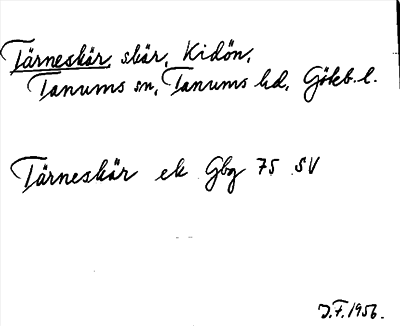 Tärneskär, skär, Kidön,
Tanums sn, Tanums hd, Götb. l.
Tärneskär ek Gbg 75 SV
J.F. 1956.